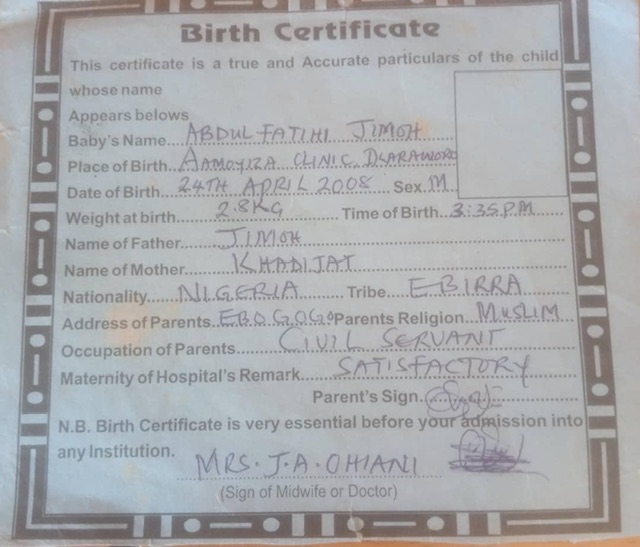 Birth Certificate
This certificate is a true and Accurate particulars of the child
whose name
Appears belows
Baby's Name ABDUL FATIHI JIMOH
Place of Birth AAMOYIZA CLINIC
Date of Birth 24TH APRIL 2008 Sex M
Weight at birth 2.8KG Time of Birth 3:35P.M
Name of Father JIMOH
Name of Mother KHADIJAT
Nationality NIGERIA Tribe EBIRRA
Address of Parents EBOGOGO Parents Religion MUSLIM
Occupation of Parents CIVIL SERVANT
Maternity of Hospital's Remark SATISFACTORY
Parent's Sign.
N.B. Birth Certificate is very essential before your admission into
any Institution. MRS. J. A. OHIANI
(Sign of Midwife or Doctor)